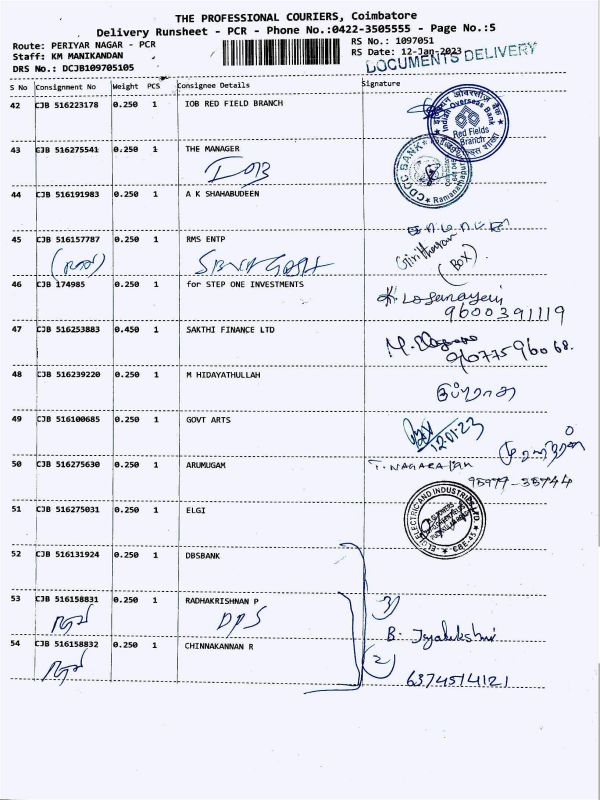 THE PROFESSIONAL COURIERS, Coimbatore
Delivery Runsheet - PCR - Phone No.:0422-3505555 - Page No.:5
Route: PERIYAR NAGAR - PCR RS No.: 1097051
Staff: KM MANIKANDAN RS Date: 12-Jan-2023
DRS No.: DCJB109705105 DOCUMENTS DELIVERY
S No Consignment No Weight PCS Consignee Details Signature
42 CJB 516223178 0.250 1 IOB RED FIELD BRANCH
Indian Overseas Bank
Red Fields
Branch
43 CJB 516275541 0.250 1 THE MANAGER
IOB
CDCC BANK
Ramanathapuram
44 CJB 516191983 0.250 1 A K SHAHABUDEEN
45 CJB 516157787 0.250 1 RMS ENTP
(BOX)
46 CJB 174985 0.250 1 for STEP ONE INVESTMENTS
9600391119
47 CJB 516253883 0.450 1 SAKTHI FINANCE LTD
9077596068.
48 CJB 516239220 0.250 1 M HIDAYATHULLAH
49 CJB 516100685 0.250 1 GOVT ARTS
12.01.23
50 CJB 516275630 0.250 1 ARUMUGAM T. NAGARAJAN
95977-35744
51 CJB 516275031 0.250 1 ELGI
ELGI ELECTRIC AND INDUSTRIES LTD.
CBE-45
52 CJB 516131924 0.250 1 DBSBANK
53 CJB 516158831 0.250 1 RADHAKRISHNAN P
B. Jayalakshmi
54 CJB 516158832 0.250 1 CHINNAKANNAN R
2)
6374514121